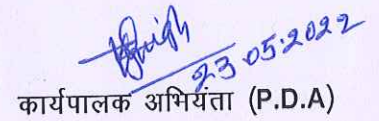 23.05.2022
कार्यपालक अभियंता (P.D.A)